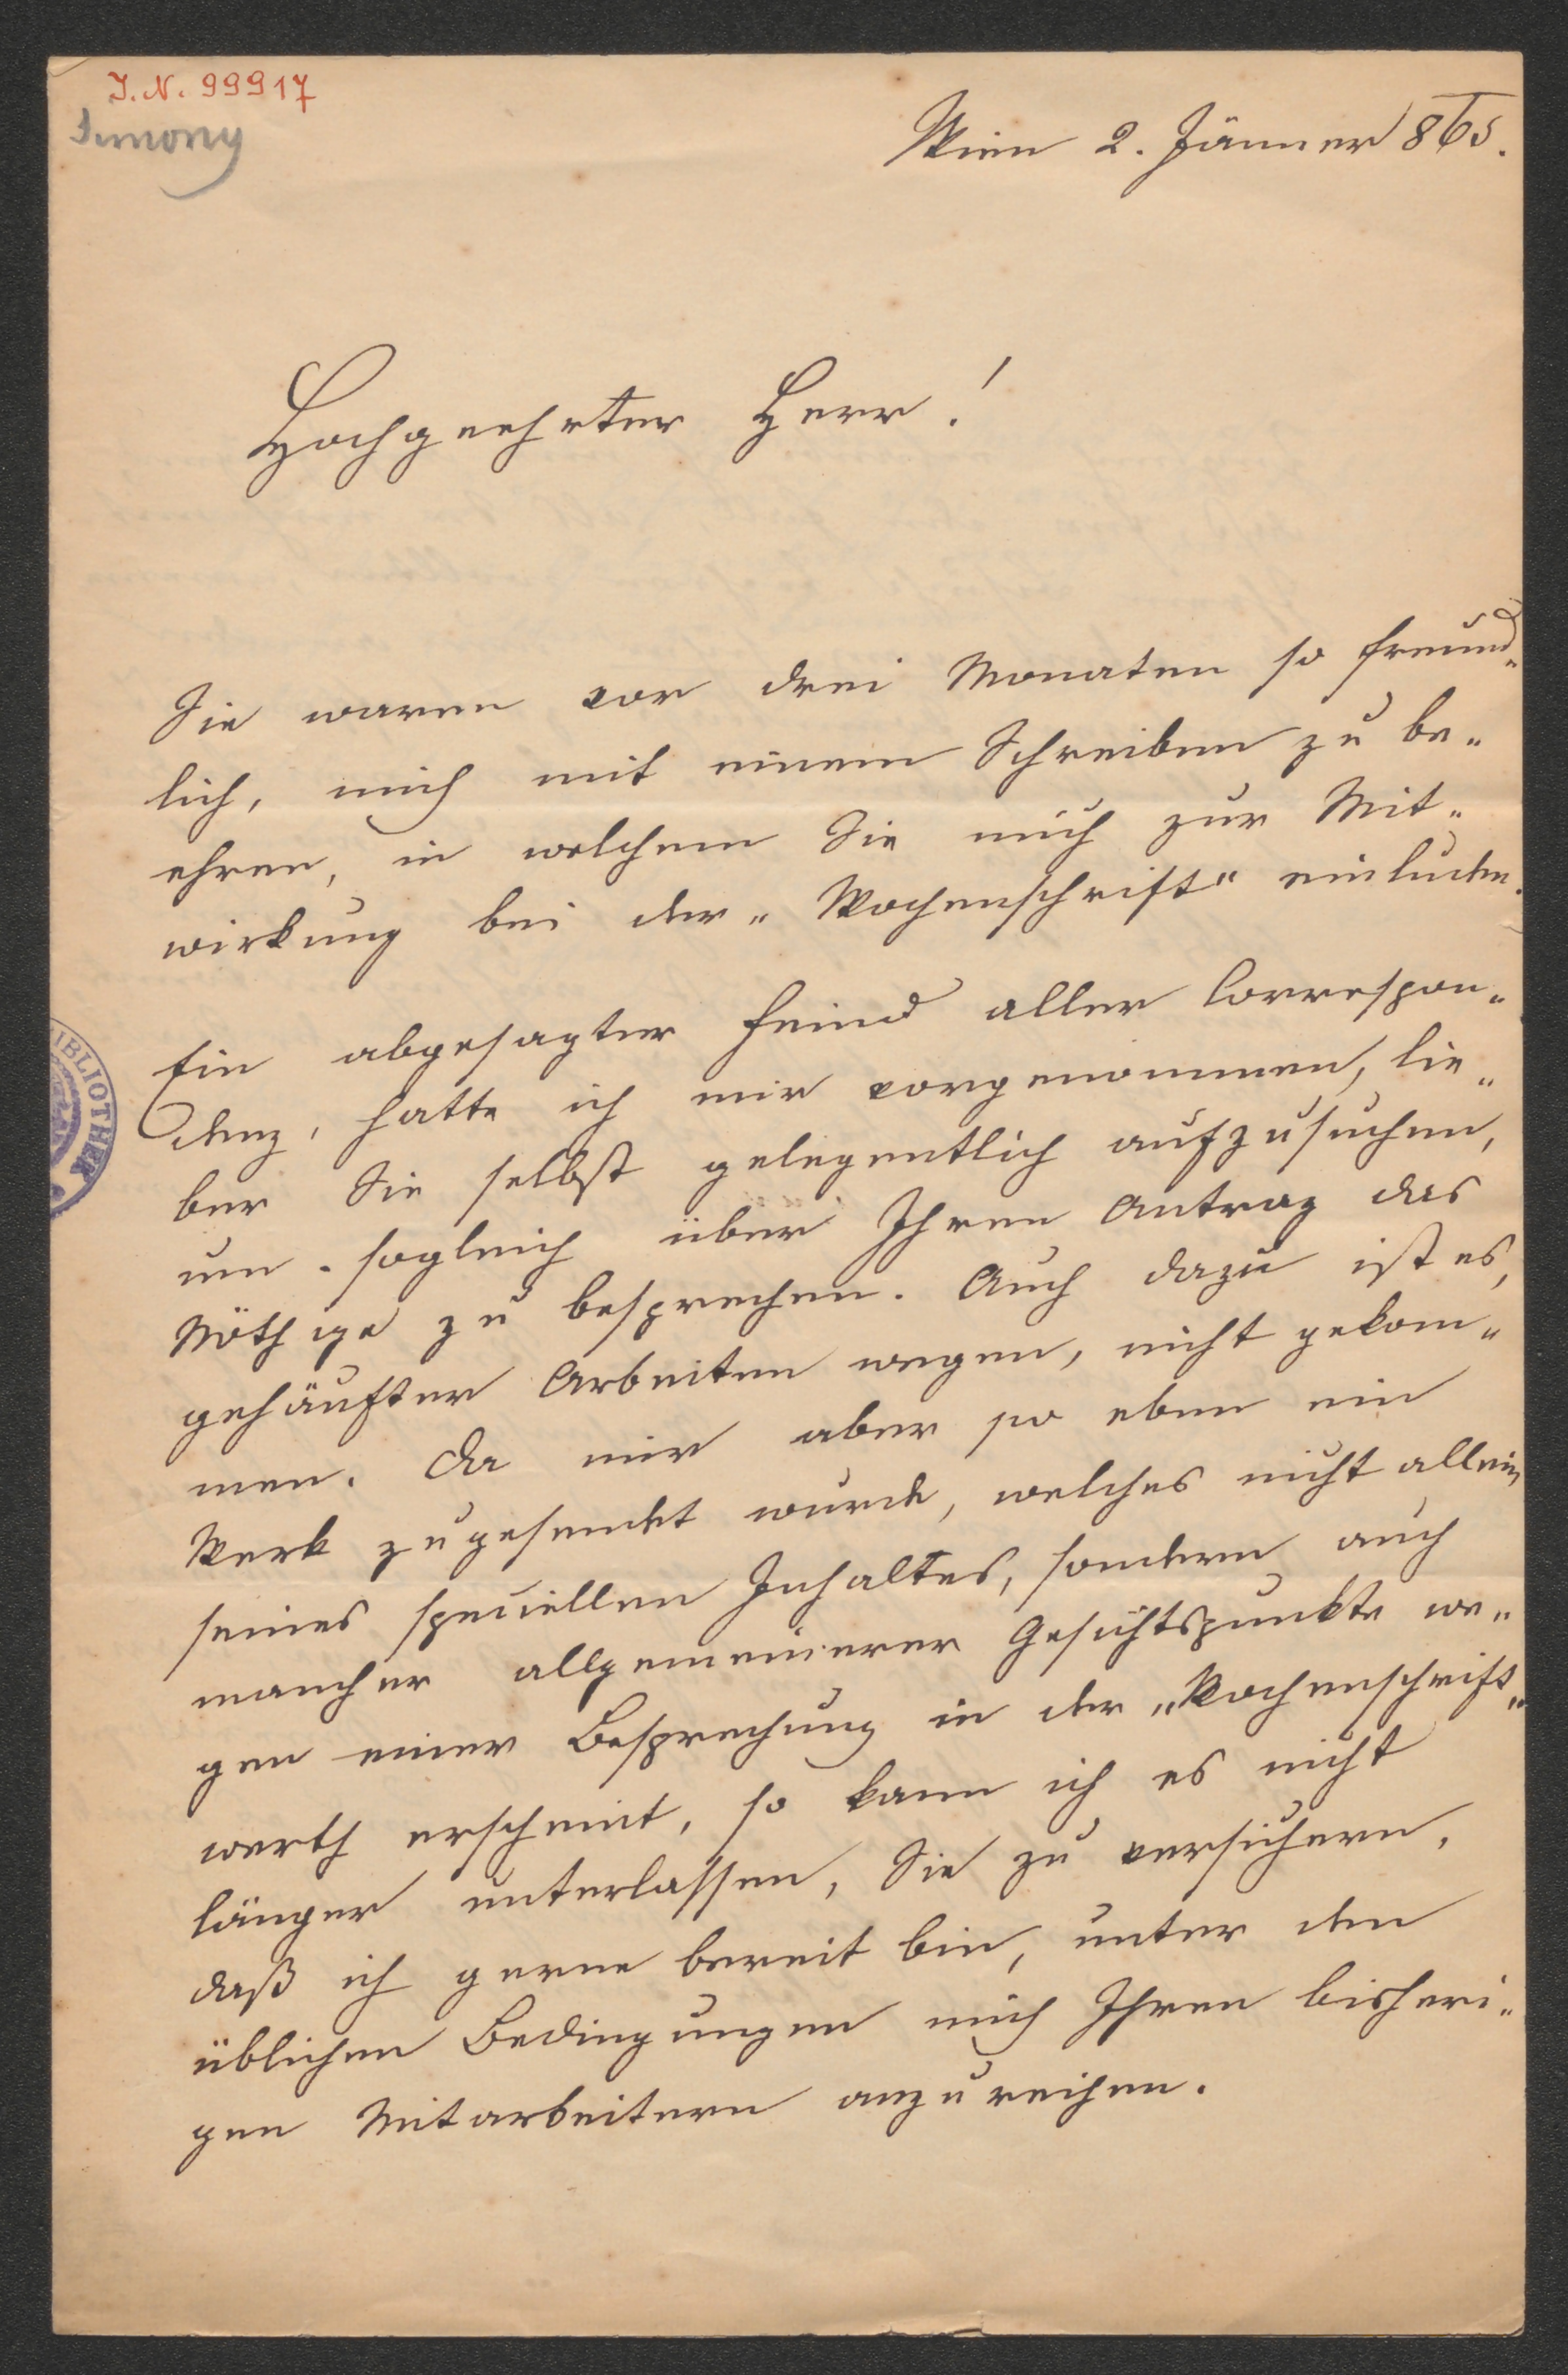 J. N. 99917
Simony
Wien 2. Jänner 865.
Hochgeehrter Herr!
Sie waren vor drei Monaten so freund„
lich, mich mit einem Schreiben zu be„
ehren, in welchem Sie mich zur Mit„
wirkung bei der „Wochenschrift“ einluden.
Ein abgesagter Feind aller Correspon„
denz, hatte ich mir vorgenommen, lie„
ber Sie selbst gelegentlich aufzusuchen,
um sogleich über Ihren Antrag das
Nöthige zu besprechen. Auch dazu ist es,
gehäufter Arbeiten wegen, nicht gekom„
men. Da mir aber so eben ein
Werk zugesendet wurde, welches nicht allein
seines speciellen Inhaltes, sondern auch
mancher allgemeinerer Gesichtspunkte we„
gen einer Besprechung in der „Wochenschrift“
werth erscheint, so kann ich es nicht
länger unterlassen, Sie zu versichern,
daß ich gerne bereit bin, unter den
üblichen Bedingungen mich Ihren bisheri„
gen Mitarbeitern anzureihen.
IBLIOTHEK